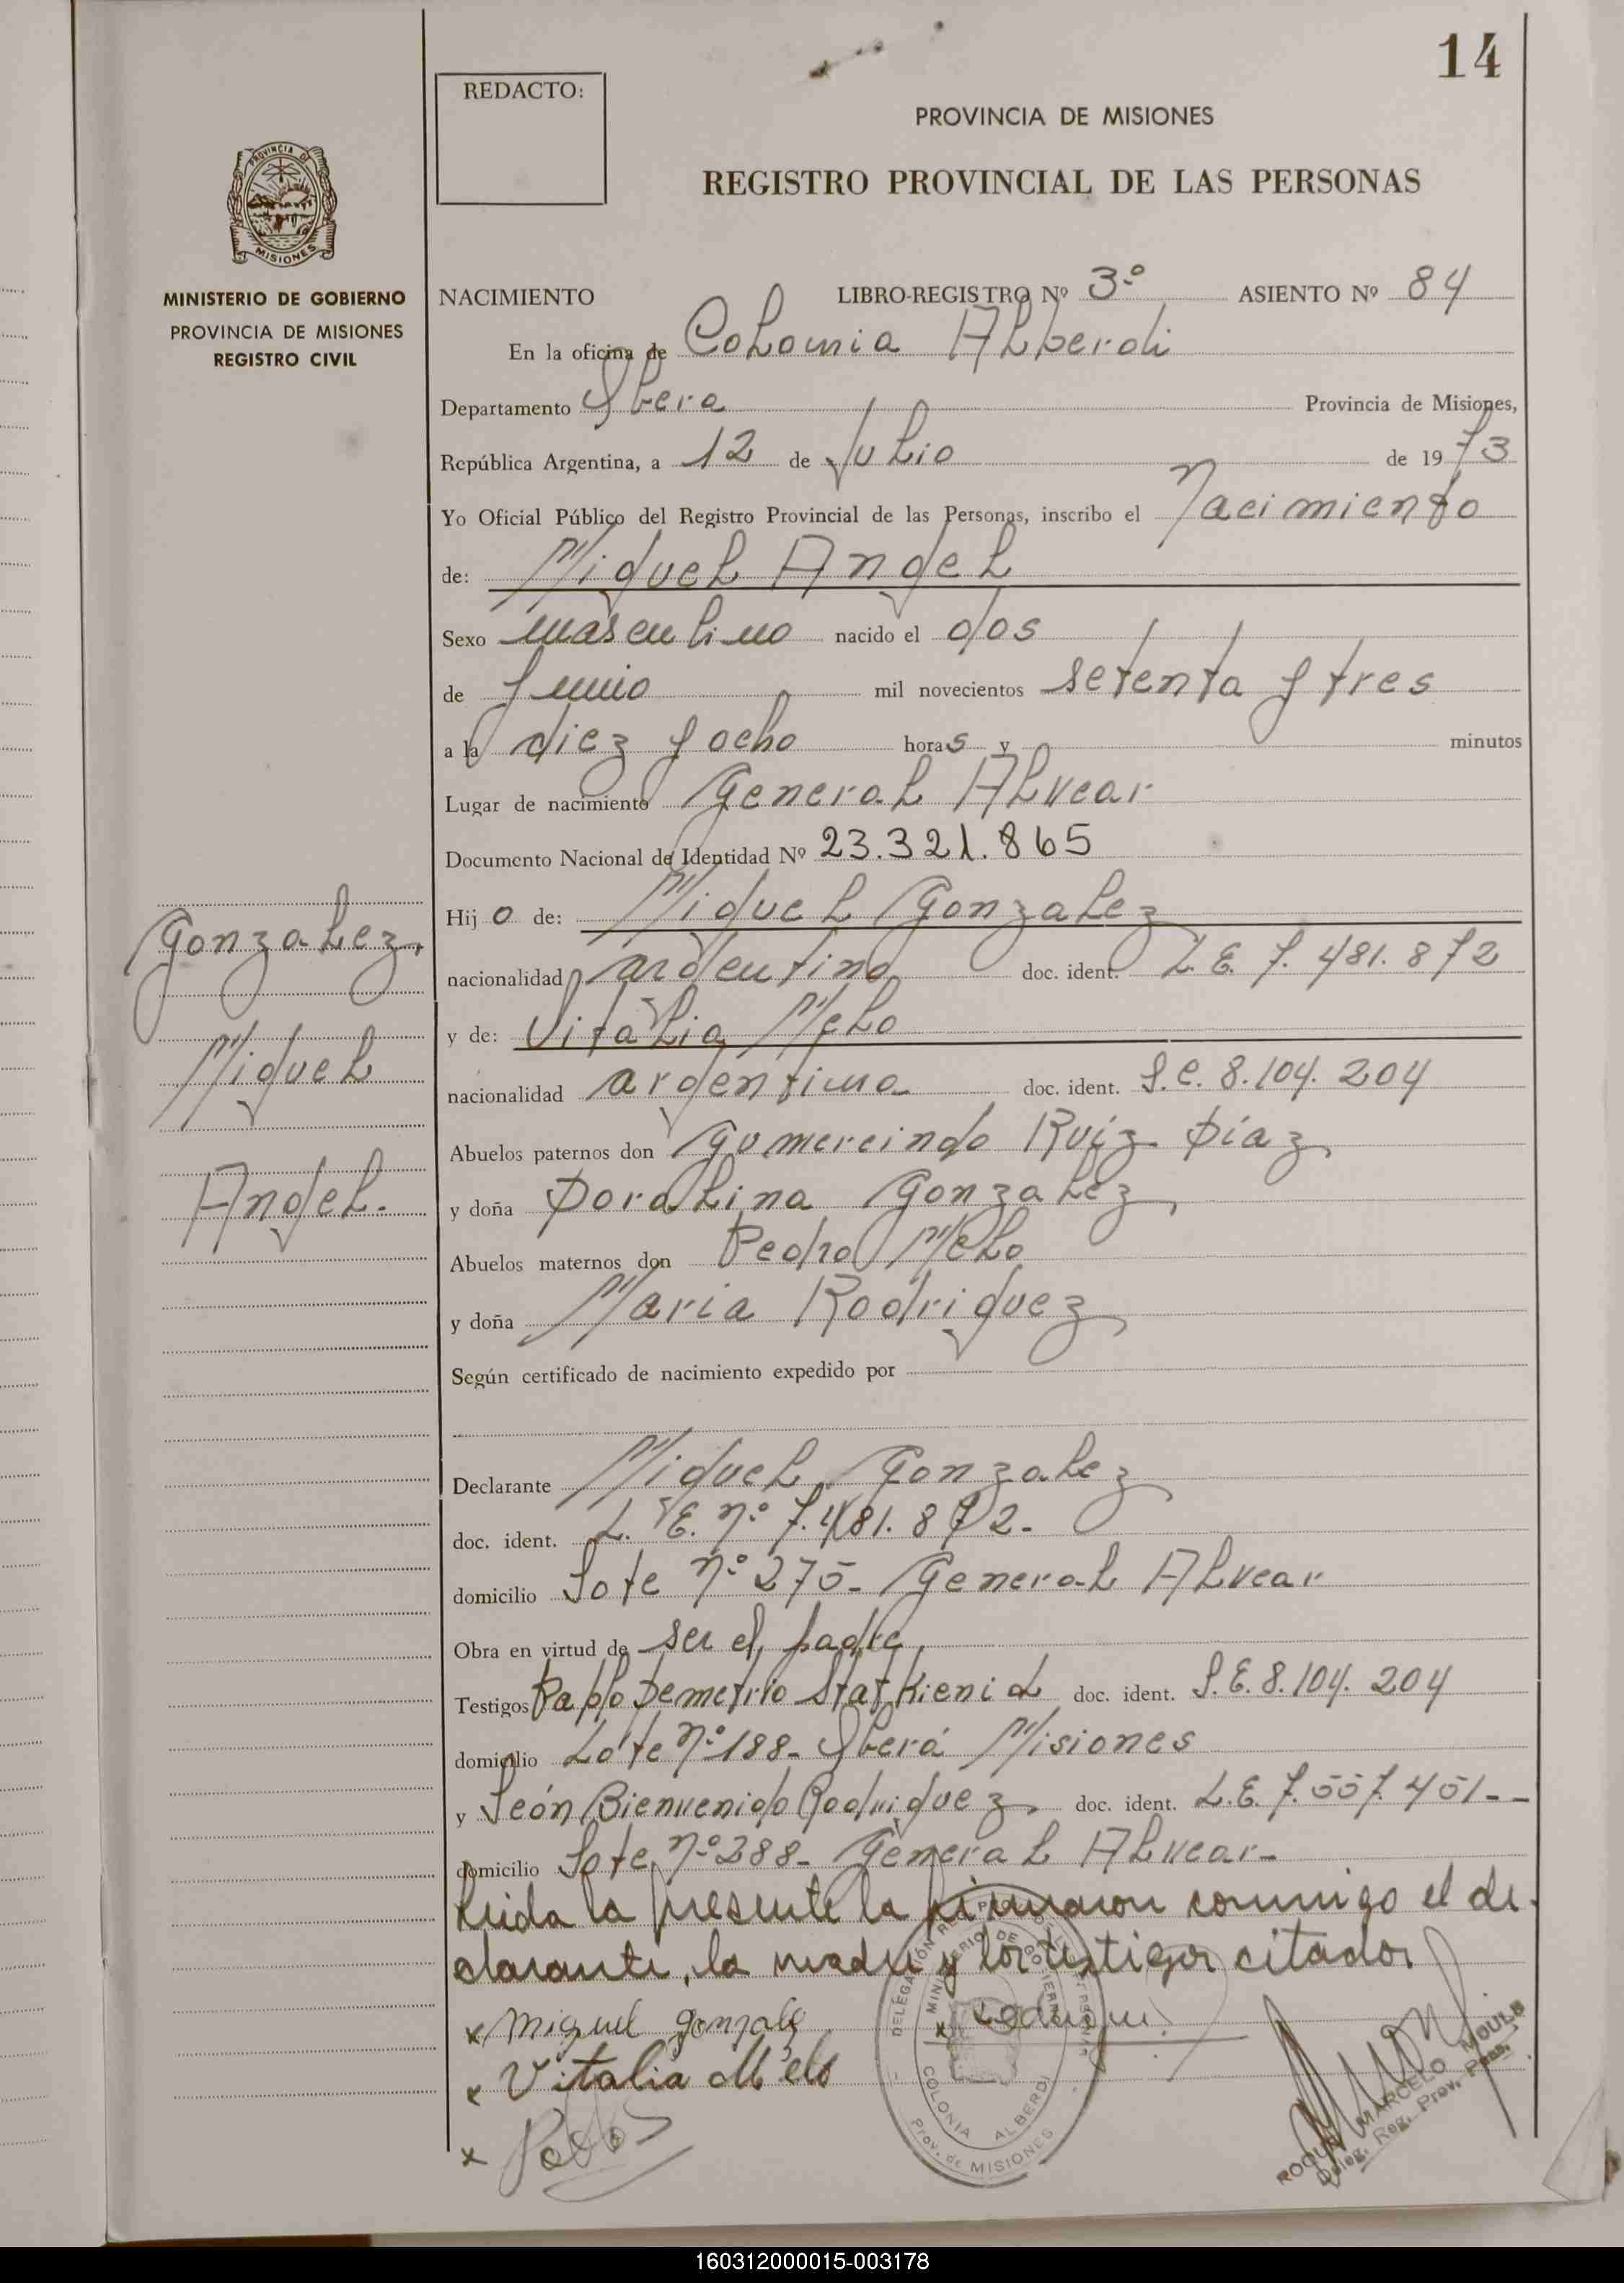 14
REDACTO:
PROVINCIA DE MISIONES
REGISTRO PROVINCIAL DE LAS PERSONAS
PROVINCIA DE
MISIONES
MINISTERIO DE GOBIERNO
PROVINCIA DE MISIONES
REGISTRO CIVIL
NACIMIENTO LIBRO-REGISTRO Nº 3º ASIENTO Nº 84
En la oficina de Colonia Alberdi
Departamento Ybera Provincia de Misiones,
República Argentina, a 12 de Julio de 1973
Yo Oficial Público del Registro Provincial de las Personas, inscribo el Nacimiento
de: Miguel Angel
Sexo masculino nacido el dos
de Junio mil novecientos setenta y tres
a la diez y ocho horas y minutos
Lugar de nacimiento General Alvear
Documento Nacional de Identidad Nº 23.321.865
Hijo de: Miguel Gonzalez
nacionalidad argentino doc. ident. L.E. 7.481.872
y de: Vitalia Melo
nacionalidad argentina doc. ident. L.C. 8.104.204
Abuelos paternos don Gumercindo Ruiz Diaz
y doña Doralina Gonzalez
Abuelos maternos don Pedro Melo
y doña Maria Rodriguez
Según certificado de nacimiento expedido por
Declarante Miguel Gonzalez
doc. ident. L.E. nº 7.481.872-
domicilio Lote nº 275- General Alvear
Obra en virtud de ser el padre
Testigos Pablo Demetrio doc. ident. L.E. 8.104.204
domicilio Lote nº 188- Yberá Misiones
y León Bienvenido Rodriguez doc. ident. L.E. 7.557.451--
domicilio Lote nº 288- General Alvear-
Leida la presente la firmaron conmigo el de-
clarante, la madre y los testigos citados
x Miguel gonzalez
x Vitalia Melo
x
x
Gonzalez,
Miguel
Angel.
MINISTERIO DE GOBIERNO
COLONIA ALBERDI
Prov. de MISIONES
ROQUE MARCELO MOULE
Deleg. Reg. Prov. Pers.
160312000015-003178